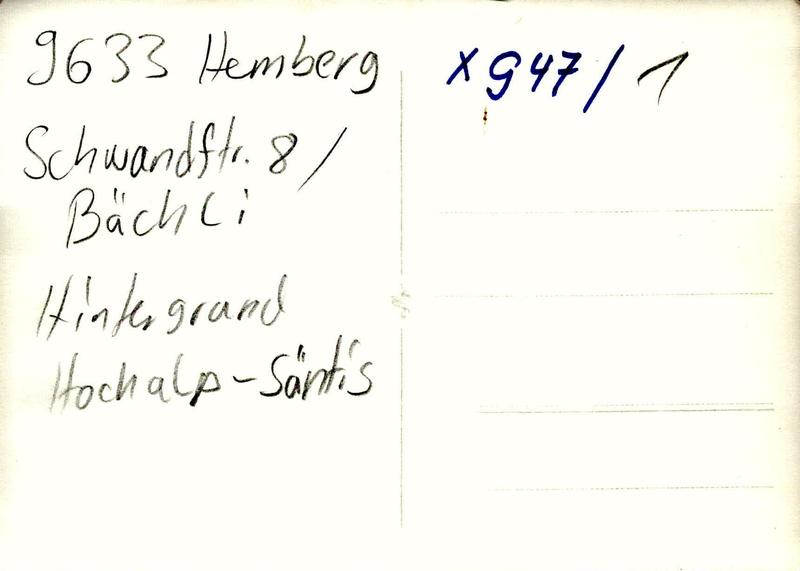 9633 Hemberg
Schwandstr. 8/
Bächli
Hintergrund
Hochalp - Säntis
x 947/1